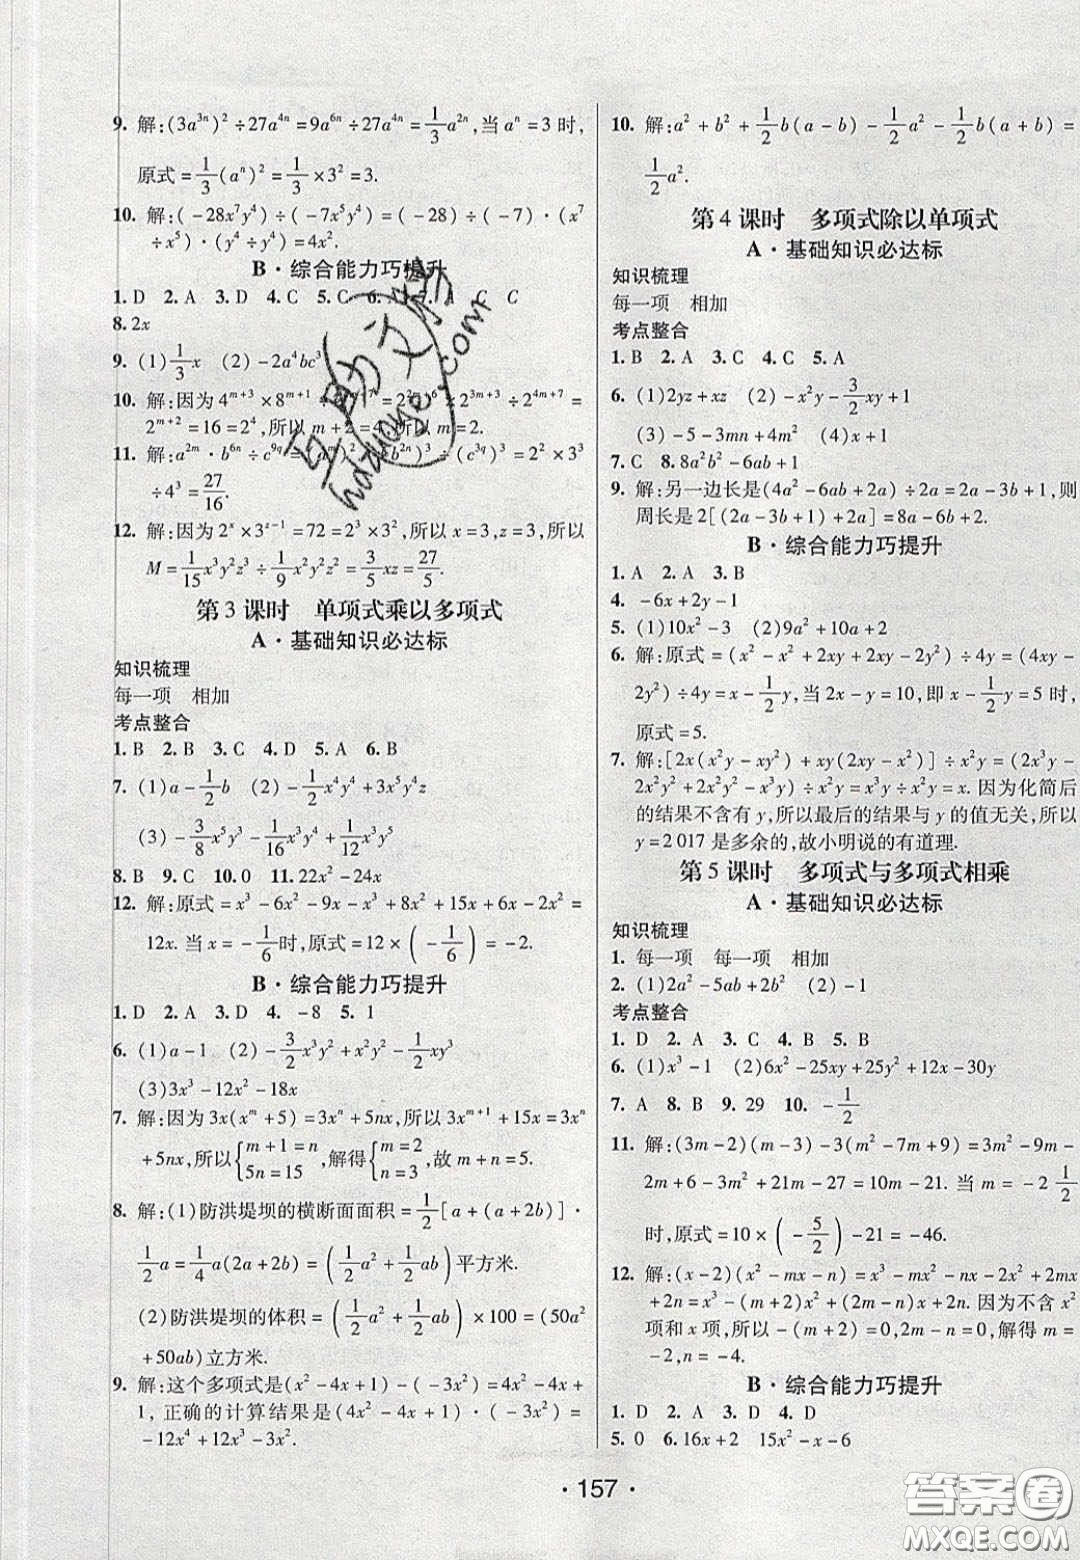 9. 解:(3a³ⁿ)²÷27a⁴ⁿ=9a⁶ⁿ÷27a⁴ⁿ=1/3a²ⁿ,当aⁿ=3时,
原式=1/3(aⁿ)²=1/3×3²=3.
10. 解:(-28x⁷y⁴)÷(-7x⁵y⁴)=(-28)÷(-7)·(x⁷
÷x⁵)·(y⁴÷y⁴)=4x².
B·综合能力巧提升
1. D 2. A 3. D 4. C 5. C 6. A 7. A C C
8. 2x
9. (1)1/3x (2)-2a⁴bc³
10. 解:因为4^(m+3)×8^(m+1)÷2^(4m+7)=2^(2m+6)×2^(3m+3)÷2^(4m+7)=
2^(m+2)=16=2⁴,所以m+2=4,所以m=2.
11. 解:a^(2m)·b^(6n)÷c^(9q)=(a^m)²×(b^(2n))³÷(c^(3q))³=2²×3³
÷4³=27/16.
12. 解:因为2^x×3^(z-1)=72=2³×3²,所以x=3,z=3,所以
M=1/15x³y²z³÷1/9x²y²z²=3/5xz=27/5.
第3课时 单项式乘以多项式
A·基础知识必达标
知识梳理
每一项 相加
考点整合
1. B 2. B 3. C 4. D 5. A 6. B
7. (1)a-1/2b (2)-1/2x⁴y⁴+3x⁵y⁴z
(3)-3/8x⁵y³-1/16x³y⁴+1/12x³y³
8. B 9. C 10. 0 11. 22x²-24x
12. 解:原式=x³-6x²-9x-x³+8x²+15x+6x-2x²=
12x. 当x=-1/6时,原式=12×(-1/6)=-2.
B·综合能力巧提升
1. D 2. A 3. D 4. -8 5. 1
6. (1)a-1 (2)-3/2x³y²+x²y²-1/2xy³
(3)3x³-12x²-18x
7. 解:因为3x(x^m+5)=3xⁿ+5nx,所以3x^(m+1)+15x=3xⁿ
+5nx,所以{m+1=n 5n=15,解得{m=2 n=3,故m+n=5.
8. 解:(1)防洪堤坝的横断面面积=1/2[a+(a+2b)]·
1/2a=1/4a(2a+2b)=(1/2a²+1/2ab)平方米.
(2)防洪堤坝的体积=(1/2a²+1/2ab)×100=(50a²
+50ab)立方米.
9. 解:这个多项式是(x²-4x+1)-(-3x²)=4x²-4x+
1,正确的计算结果是(4x²-4x+1)·(-3x²)=
-12x⁴+12x³-3x².
10. 解:a²+b²+1/2b(a-b)-1/2a²-1/2b(a+b)=
1/2a².
第4课时 多项式除以单项式
A·基础知识必达标
知识梳理
每一项 相加
考点整合
1. B 2. A 3. C 4. C 5. A
6. (1)2yz+xz (2)-x²y-3/2xy+1
(3)-5-3mn+4m² (4)x+1
7. C 8. 8a²b²-6ab+1
9. 解:另一边长是(4a²-6ab+2a)÷2a=2a-3b+1,则
周长是2[(2a-3b+1)+2a]=8a-6b+2.
B·综合能力巧提升
1. A 2. A 3. B
4. -6x+2y-1
5. (1)10x²-3 (2)9a²+10a+2
6. 解:原式=(x²-x²+2xy+2xy-2y²)÷4y=(4xy-
2y²)÷4y=x-1/2y,当2x-y=10,即x-1/2y=5时,
原式=5.
7. 解:[2x(x²y-xy²)+xy(2xy-x²)]÷x²y=(2x³y-
2x²y²+2x²y²-x³y)÷x²y=x³y÷x²y=x. 因为化简后
的结果不含有y,所以最后的结果与y的值无关,所以
y=2 017是多余的,故小明说的有道理.
第5课时 多项式与多项式相乘
A·基础知识必达标
知识梳理
1. 每一项 每一项 相加
2. (1)2a²-5ab+2b² (2)-1
考点整合
1. D 2. A 3. C 4. B 5. B
6. (1)x³-1 (2)6x²-25xy+25y²+12x-30y
7. A 8. B 9. 29 10. -1/2
11. 解:(3m-2)(m-3)-3(m²-7m+9)=3m²-9m-
2m+6-3m²+21m-27=10m-21. 当m=-2 1/2
时,原式=10×(-5/2)-21=-46.
12. 解:(x-2)(x²-mx-n)=x³-mx²-nx-2x²+2mx
+2n=x³-(m+2)x²+(2m-n)x+2n. 因为不含x²
项和x项,所以-(m+2)=0,2m-n=0,解得m=
-2,n=-4.
B·综合能力巧提升
1. D 2. A 3. D 4. D
5. 0 6. 16x+2 15x²-x-6
·157·
互助文档
hdzuoye.com
答案圈
MXQE.COM